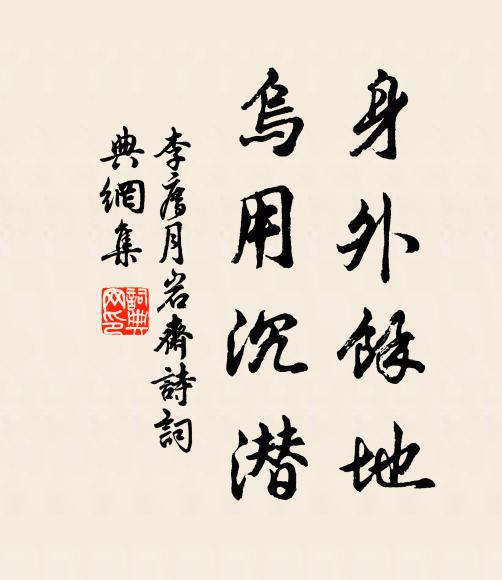 身外餘地
烏用沉潛
李廌月岩齋詩詞
典網集
詞典網印